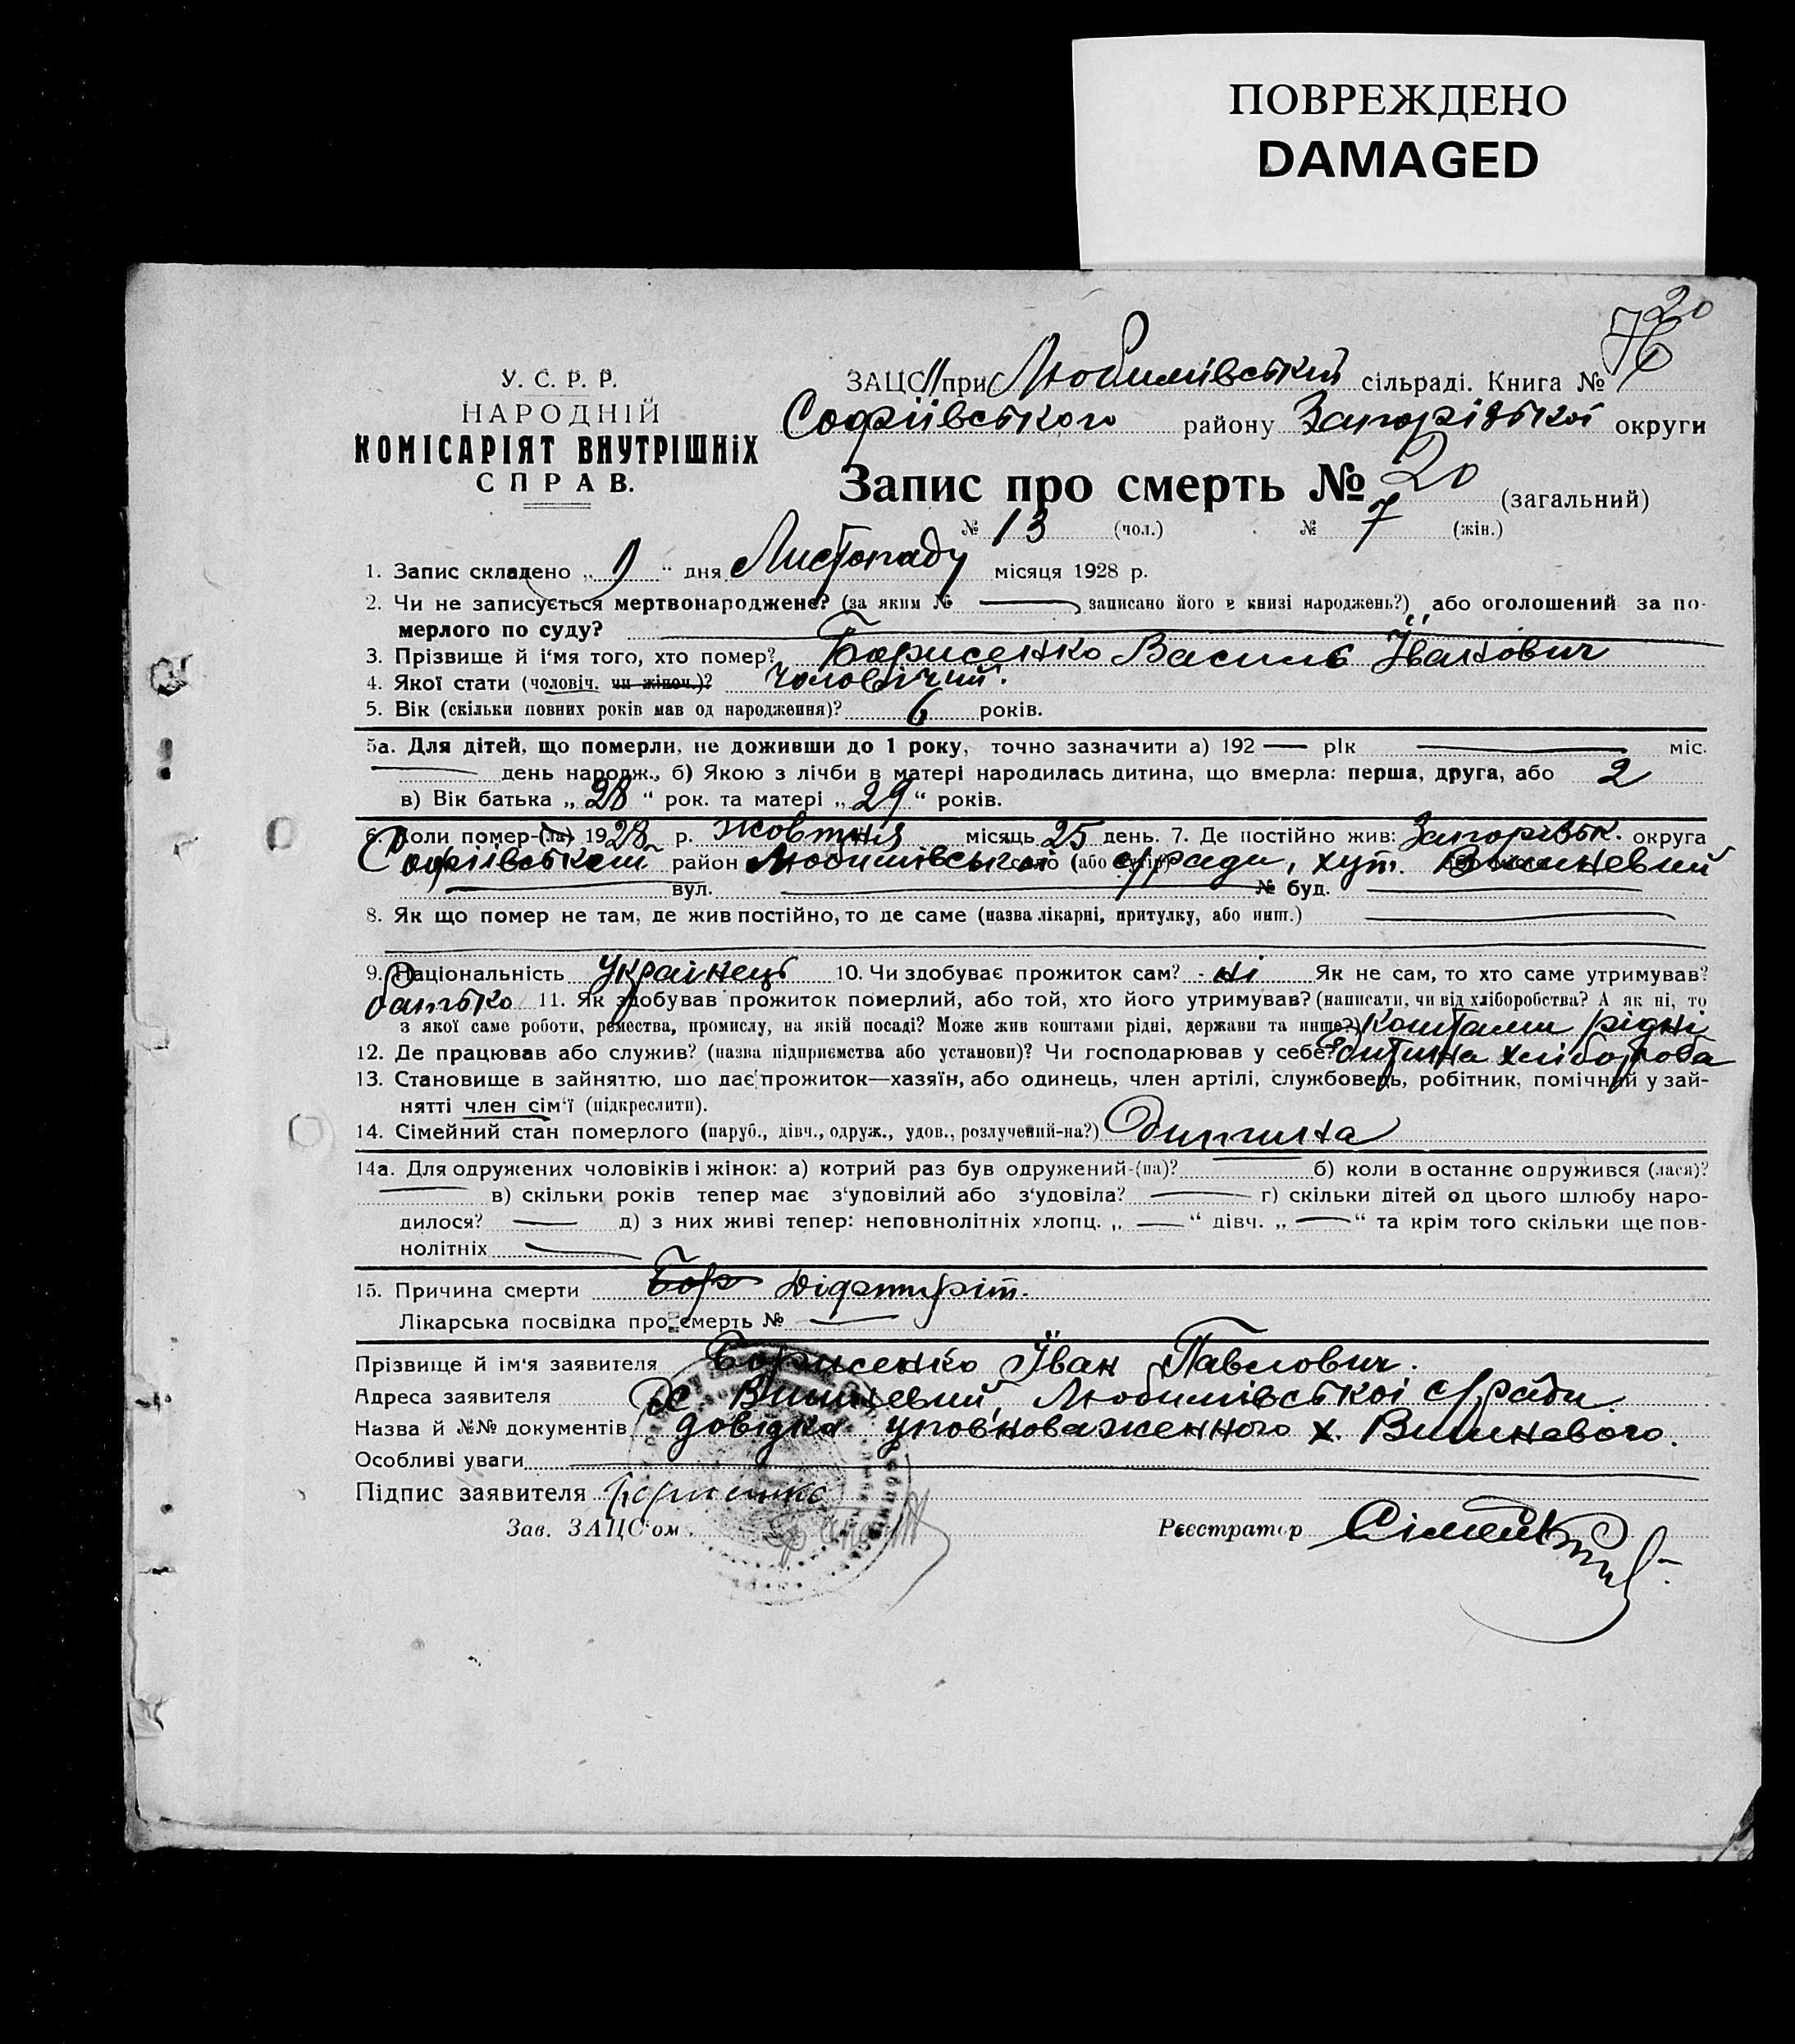 ПОВРЕЖДЕНО
DAMAGED
20
76
У. С. Р. Р.
НАРОДНІЙ
КОМІСАРІЯТ ВНУТРІШНІХ
СПРАВ.
ЗАЦС при Любимівській сільраді. Книга №
Софіївського району Запорізької округи
Запис про смерть № 20 (загальний)
№ 13 (чол.) № 7 (жін.)
1. Запис складено „ 1 “ дня Листопаду місяця 1928 р.
2. Чи не записується мертвонароджене? (за яким № — записано його в книзі народжень?) або оголошений за по-
мерлого по суду?
3. Прізвище й і‘мя того, хто помер? Борисенко Василь Іванович
4. Якої стати (чоловіч. чи жіноч.)? чоловічий.
5. Вік (скільки повних років мав од народження)? 6 років.
5а. Для дітей, що померли, не доживши до 1 року, точно зазначити а) 192 — рік — міс.
— день народж., б) Якою з лічби в матері народилась дитина, що вмерла: перша, друга, або 2
в) Вік батька „ 28 “ рок. та матері „ 29 “ років.
6. Коли помер-(ла) 1928 р. жовтня місяць 25 день. 7. Де постійно жив: Запорізьк. округа
Софіївський район Любимівської село (або с/ради, хут. Вишневий
— вул. — № буд. —
8. Як що помер не там, де жив постійно, то де саме (назва лікарні, притулку, або инш.) —
9. Національність Українець 10. Чи здобував прожиток сам? - ні Як не сам, то хто саме утримував?
батько 11. Як здобував прожиток померлий, або той, хто його утримував? (написати, чи від хліборобства? А як ні, то
з якої саме роботи, ремества, промислу, на якій посаді? Може жив коштами рідні, держави та инше?) Коштами рідні
12. Де працював або служив? (назва підприємства або установи)? Чи господарював у себе? Дитина хлібороба
13. Становище в зайняттю, що дає прожиток—хазяїн, або одинець, член артілі, службовець, робітник, помічний у зай-
нятті член сім‘ї (підкреслити).
14. Сімейний стан померлого (паруб., дівч., одруж., удов., розлучений-на?) Дитина
14а. Для одружених чоловіків і жінок: а) котрий раз був одружений-(на)? — б) коли в останнє одружився (лася)?
— в) скільки років тепер має з‘удовілий або з‘удовіла? — г) скільки дітей од цього шлюбу наро-
дилося? — д) з них живі тепер: неповнолітніх хлопц. „ — “ дівч. „ — “ та крім того скільки ще пов-
нолітніх —
15. Причина смерти Бор Діфтиріт.
Лікарська посвідка про смерть № —
Прізвище й ім‘я заявителя Борисенко Іван Павлович.
Адреса заявителя Вишневий, Любимівської с/ради
Назва й №№ документів довідка уповноваженного х. Вишневого.
Особливі уваги
Підпис заявителя Борисенко
Зав. ЗАЦС‘ом
Реєстратор